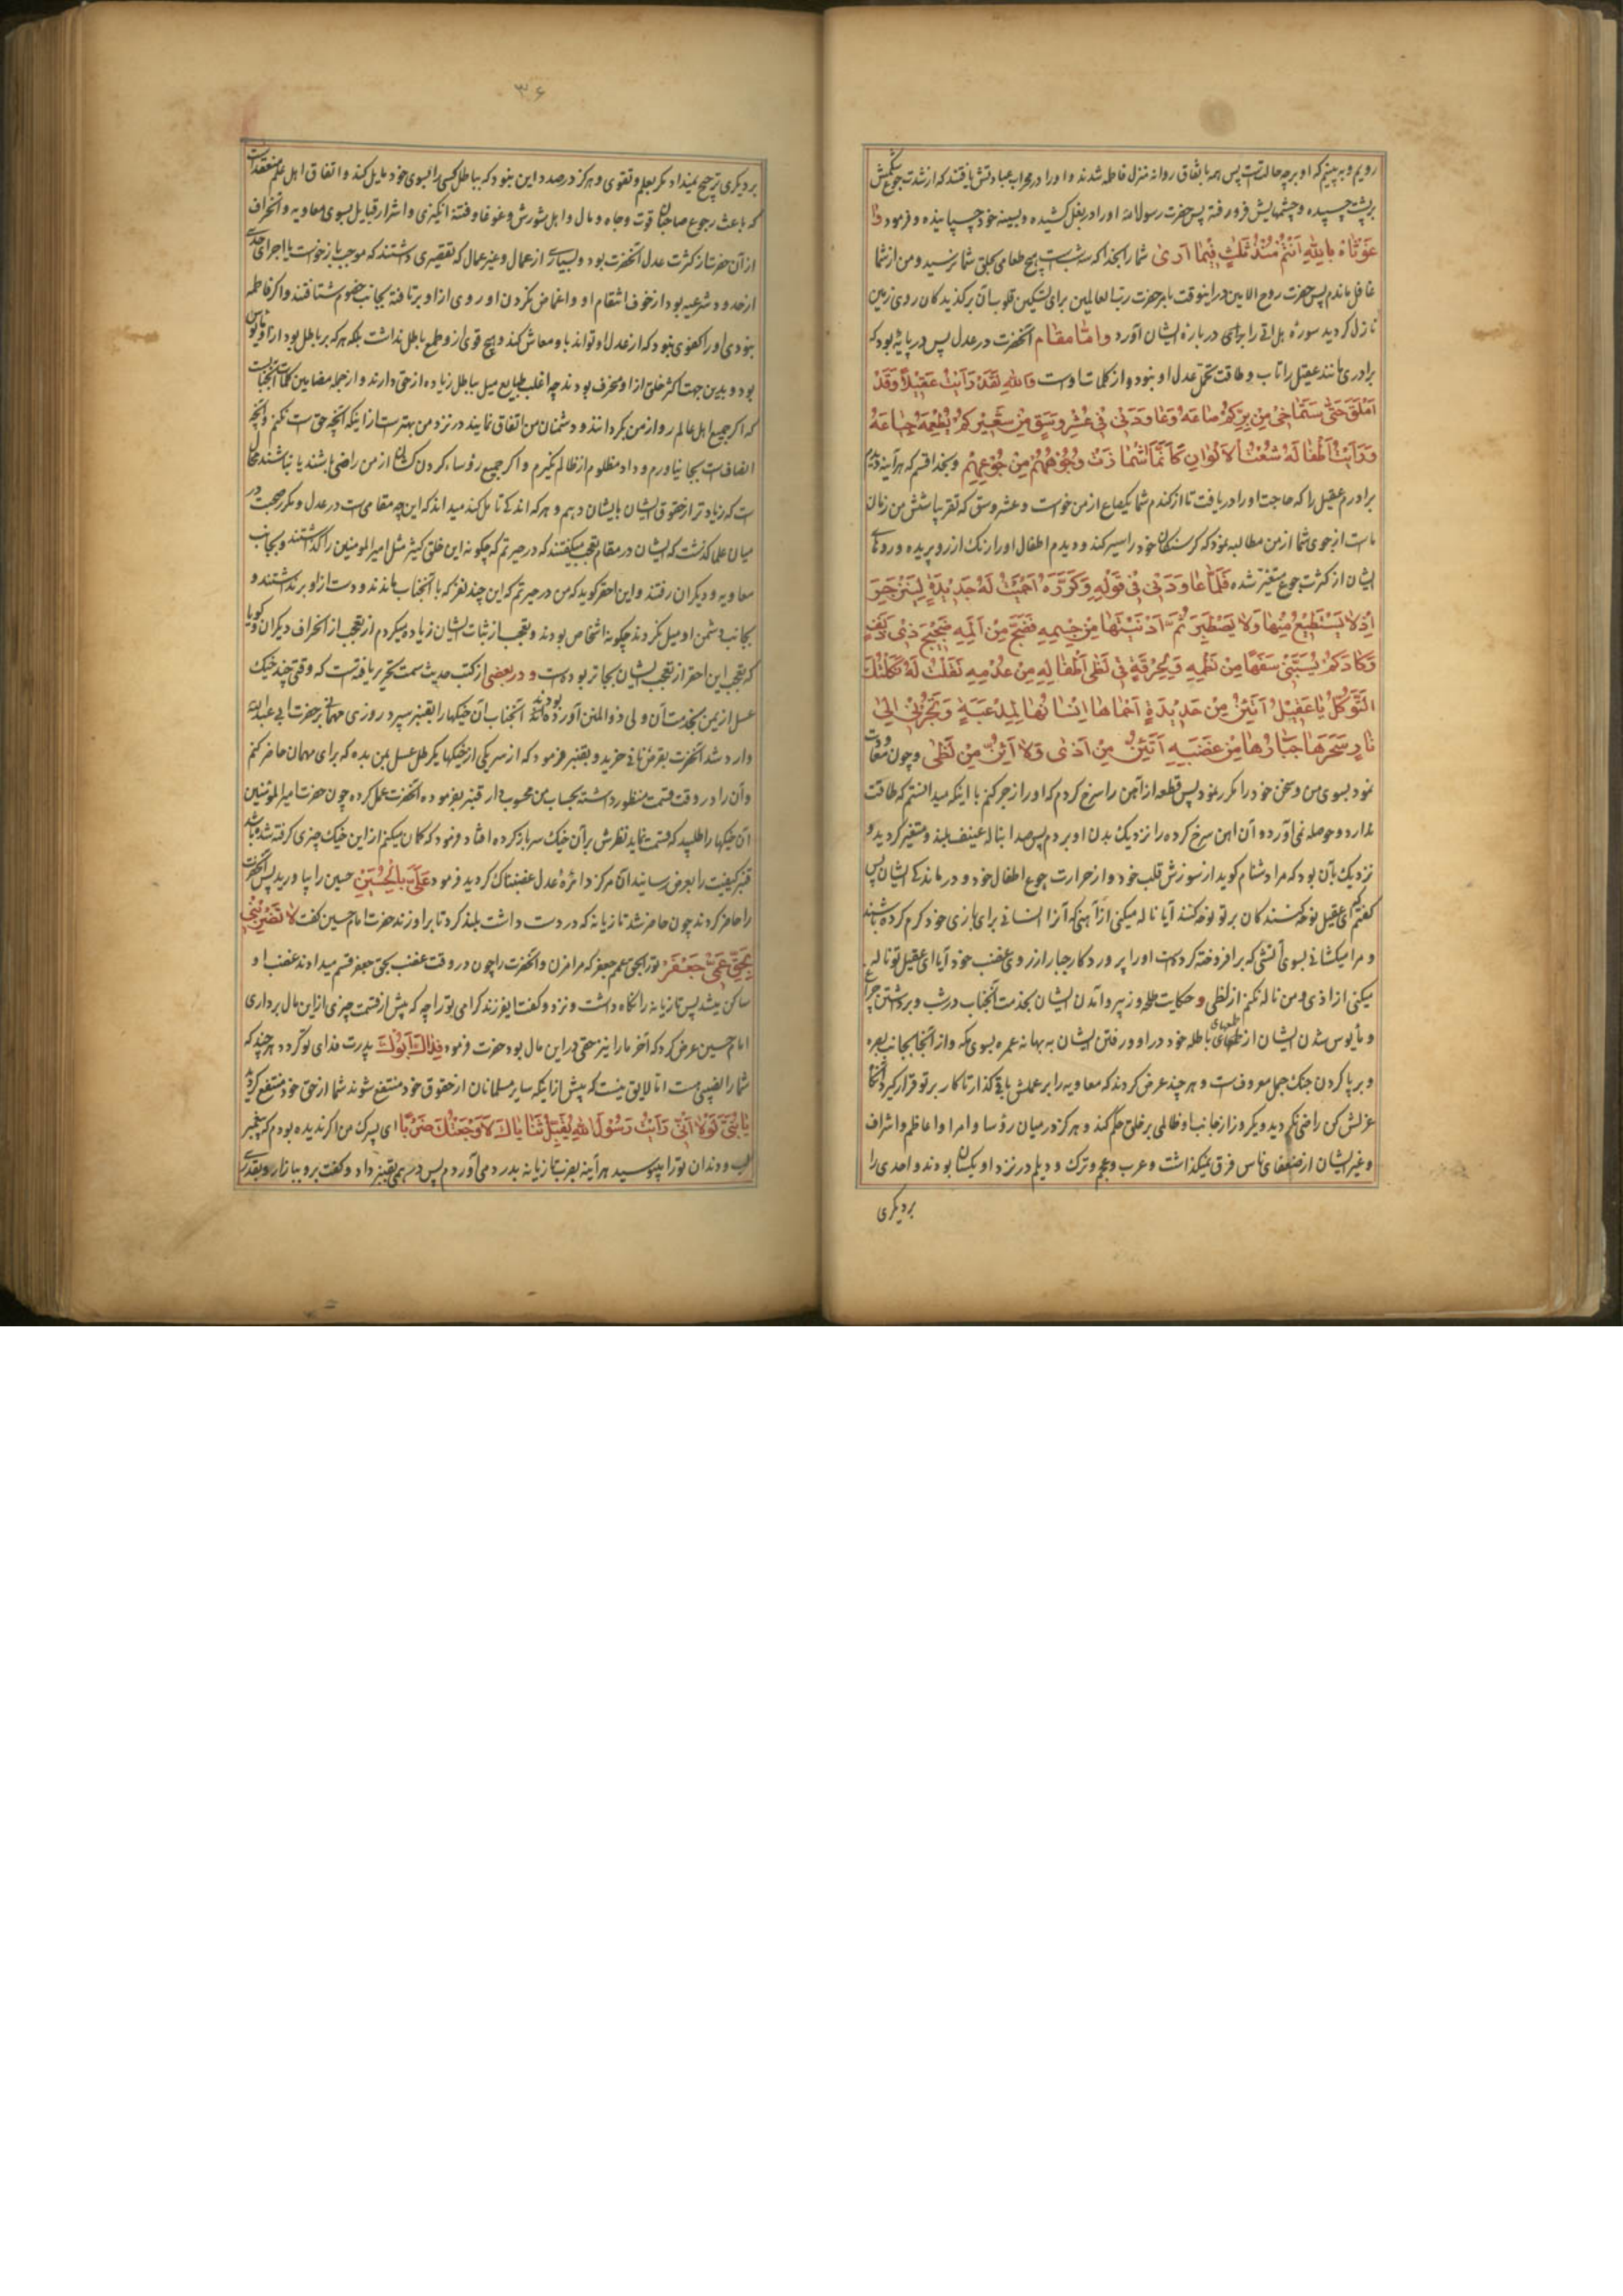 رویم و به بینیم که او بر چه حالتست پس همه باتفاق روانه منزل فاطمه شدند و او را در محراب عبادتش یافتند که از شدت جوع شکمش
بر پشت چسپیده و چشمهایش فرو رفته پس حضرت رسول الله او را در بغل کشیده و بسینه خود چسپانیده و فرمود وا
غوثاه بالله انتم منذ ثلث فیما اری شما را بخدا که سه شب است هیچ طعامی بحلق شما نرسید و من از شما
غافل ماندم پس حضرت روح الامین در اینوقت بامر حضرت رب العالمین برای تسکین قلوب آن برگزیدگان روی زمین
نازل گردید سوره هل اتی را در باره ایشان آورد و اما مقام آنحضرت در عدل پس در پایه بود که
برادری مانند عقیل را تاب و طاقت تحمل عدل او نبود و از کلمات اوست والله لقد رایت عقیلا وقد
املق حتی استماحنی من برکم صاعه وعاودنی فی عشر وسق من شعیرکم یطعمه جیاعه
ورایت اطفاله شعث الالوان کانما اشمازت وجوههم من جوعهم و بخدا قسم که هر آینه دیدم
برادرم عقیل را که حاجت او را دریافت تا از گندم شما یکصاع از من خواست و عشر وسق که تقریبا شش من زمان
ما است از جوی شما از من مطالبه نمود که گرسنگان خود را سیر کند و دیدم اطفال او را رنگ از رو پریده و روهای
ایشان از کثرت جوع متغیر شده فلما عاودنی فی قوله وکرره احمیت له حدیدة لینزجر
اذ لا یستطیع منها ولا یصطبر ثم ادنیتها من جسمه فضج من المه ضجیج ذی دنف
وکاد یسبنی سفها من کظمه ولحرقة فی لظی اطفاله من عدمه فقلت له ثکلتک
الثواکل یا عقیل اتئن من حدیدة احماها انسانها لمدعبه وتجرنی الی
نار سجرها جبارها من غضبه اتئن من اذی ولا ائن من لظی و چون معاودت
نمود بسوی من و سخن خود را مکرر نمود پس قطعه از آهن را سرخ کردم که او را زجر کنم با اینکه میدانستم که طاقت
ندارد و حوصله نمی آورد و آن آهن سرخ کرده را نزدیک بدن او بردم پس صدا بناله عنیف بلند و متغیر گردید و
نزدیک بآن بود که مرا دشنام گوید از سوزش قلب خود و از حرارت جوع اطفال خود و درماندگی ایشان پس
گفتم ای عقیل نوحه کنندگان بر تو نوحه کنند آیا ناله میکنی از آهنی که آنرا انسانی برای بازی خود گرم کرده باشد
و مرا میکشانی بسوی آتشی که برافروخته کرده است او را پروردگار جبار از روی غضب خود آیا ای عقیل تو ناله
میکنی از اذی و من ناله نکنم از لظی و حکایت طلحه و زبیر و آمدن ایشان بخدمت آنجناب در شب و برداشتن چراغ
و مأیوس شدن ایشان از طمعهای باطله خود در او و رفتن ایشان به بهانه عمره بسوی مکه و از آنجا بجانب بصره
و برپا کردن جنگ جمل معروف است و هر چند عرض کردند که معاویه را بر عملش باقی گذار تا کار بر تو قرار گیرد آنگاه
عزلش کن راضی نگردید و یکروز از جانب او ظالمی بر خلق حکم کند و هرگز در میان رؤسا و امرا و اعاظم و اشراف
و غیر ایشان از ضعفای ناس فرق نمیگذاشت و عرب و عجم و ترک و دیلم در نزد او یکسان بودند و احدی را
بر دیگری
۳۶
بر دیگری ترجیح نمیداد مگر بعلم و تقوی و هرگز در صدد این نبود که بباطل کسی را بسوی خود مایل کند و اتفاق اهل علم منعقد است
که باعث رجوع صاحبان قوت و جاه و مال و اهل شورش و غوغا و فتنه انگیزی و اشرار قبایل بسوی معاویه و انحراف
از آن حضرت از کثرت عدل آنحضرت بود و بسیاری از عمال و غیر عمال که تقصیری داشتند که موجب بازخواست یا اجرای حدی
از حدود شرعیه بود از خوف انتقام او و اغماض نکردن او روی از او برتافته بجانب خصوم شتافتند و اگر فاطمه
نبودی او را کفوی نبود که از عدل او تواند با او معاش کند و هیچ قوی از و طمع باطل نداشت بلکه هر که بر باطل بود از او مأیوس
بود و بدین جهت اکثر خلق از او منحرف بودند چه اغلب طبایع میل بباطل زیاده از حق دارند و از جمله مضامین کلمات آنجناب است
که اگر جمیع اهل عالم رو از من بگردانند و دشمنان من اتفاق نمایند در نزد من بهتر است از اینکه آنچه حق است نکنم و آنچه
انصاف است بجا نیاورم و داد مظلوم از ظالم نگیرم و اگر جمیع رؤسا و گردن کشان از من راضی باشند یا نباشند محال
است که زیادتر از حقوق ایشان بایشان دهم و هر که اندکی تامل کند میداند که این چه مقامی است در عدل و مکرر صحبت در
میان علما گذشت که ایشان در مقام تعجب میگفتند که در حیرتم که چگونه این خلق کثیر مثل امیر المومنین را گذاشتند و بجانب
معاویه و دیگران رفتند و این احقر گوید که من در حیرتم که این چند نفر که با آنجناب ماندند و دست از او برنداشتند و
بجانب دشمن او میل نکردند چگونه اشخاص بودند و تعجب از ثبات ایشان زیاده میکردم از تعجب از انحراف دیگران و گویا
که تعجب این احقر از تعجب ایشان بجاتر بوده است و در بعضی از کتب حدیث سمت تحریر یافتست که وقتی چند خیک
عسل از یمن بخدمت آن ولی ذو المنن آورده بودند آنجناب آن خیکها را بقنبر سپرد روزی مهمانی بر حضرت ابی عبدالله
وارد شد آنحضرت بقرض نانی خرید و بقنبر فرمود که از سر یکی از خیکها یکرطل عسل بمن بده که برای مهمان حاضر کنم
و آن را در وقت قسمت منظور داشته بحساب من محسوب دار قنبر بفرموده آنحضرت عمل کرده چون حضرت امیر المؤمنین
آن خیکها را طلبید که قسمت نماید نظرش بر آن خیک سر باز کرده افتاد فرمود که گمان میکنم از این خیک چیزی گرفته شده باشد
قنبر کیفیت را بعرض رسانید آن مرکز دائره عدل غضبناک گردید فرمود علی بالحسین حسین را بیاورید پس آنحضرت
را حاضر کردند چون حاضر شد تازیانه که در دست داشت بلند کرد تا بر او زند حضرت امام حسین گفت لا تضربنی
بحق عمی جعفر تو را بحق عمم جعفر که مرا مزن و آنحضرت را چون در وقت غضب بحق جعفر قسم میدادند غضب او
ساکن میشد پس تازیانه را نگاه داشت و نزد و گفت ایفرزند گرامی تو را چه که پیش از قسمت چیزی از این مال برداری
امام حسین عرض کرد که آخر ما را نیز حقی در این مال بود حضرت فرمود فداک ابوک پدرت فدای تو گردد هر چند که
شما را نصیبی هست اما لایق نیست که پیش از اینکه سایر مسلمانان از حقوق خود منتفع شوند شما از حق خود منتفع گردید
یا بنی لولا انی رایت رسول الله یقبل ثنایاک لاوجعتک ضربا ای پسرک من اگر ندیده بودم که پیغمبر
لب و دندان تو را میبوسید هر آینه بضرب تازیانه بدرد می آوردم پس درهمی بقنبر داد و گفت برو ببازار و بقدر